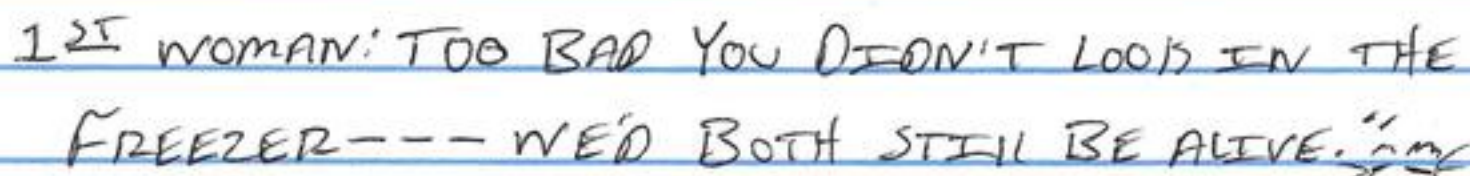 1ST WOMAN: TOO BAD YOU DIDN'T LOOK IN THE
FREEZER--- WE'D BOTH STILL BE ALIVE."